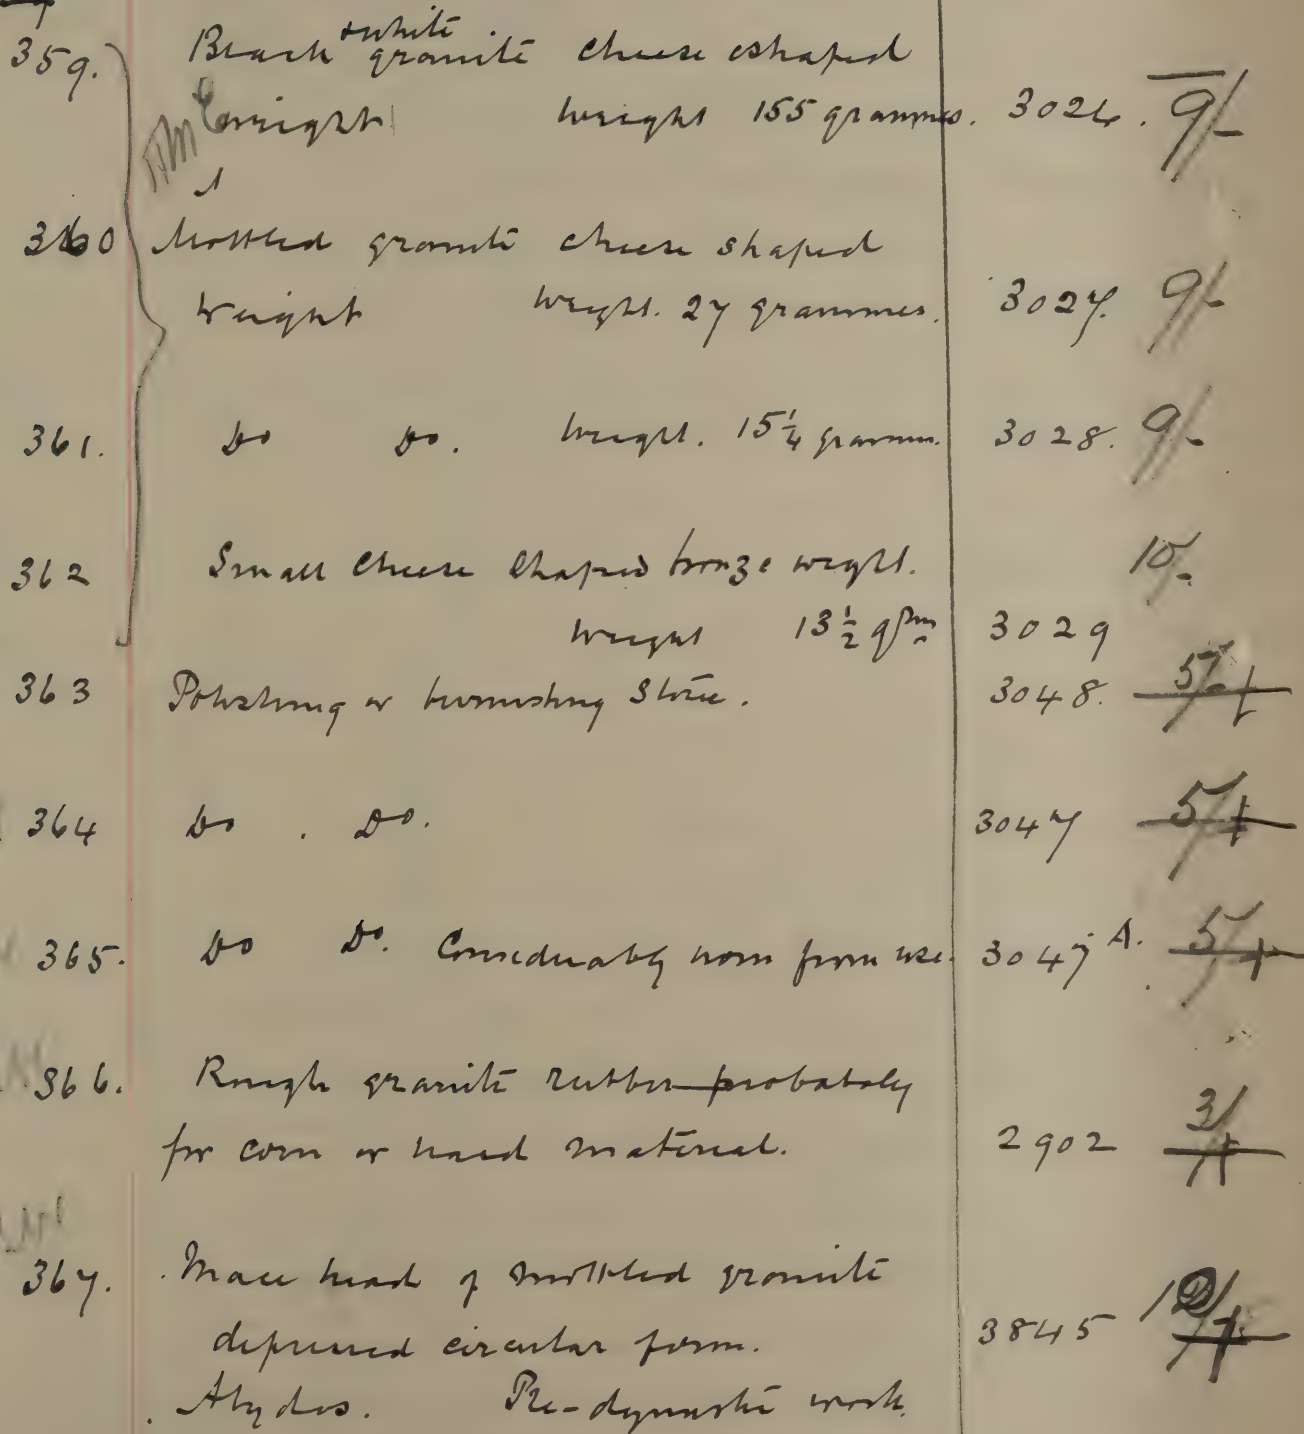 359. Black + white granite cheese shaped
weight weight 155 grammes. 3026. 9/-
360 Mottled granite cheese shaped
Weight Weight. 27 grammes. 3027. 9/-
361. Do Do. Weight. 15 1/4 gramm. 3028. 9/-
362 Small Cheese Shaped bronze weight. 10/-
Weight 13 1/2 grm 3029
363 Polishing or burnishing Stone. 3048. 5/-
364 Do . Do. 3047 5/
365. Do Do. Considerably worn from use. 3047 A. 5/
366. Rough granite rubber probably
for corn or hard material. 2902 3/
367. Mace head of mottled granite
depressed circular form. 3845
Abydos. Pre-dynastic work.